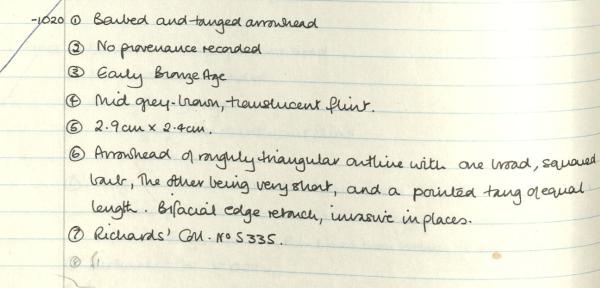 -1020 ① Barbed and tanged arrowhead
② No provenance recorded
③ Early Bronze Age
④ Mid grey-brown, translucent flint.
⑤ 2.9cm x 2.4cm.
⑥ Arrowhead of roughly triangular outline with one broad, squared
barb, The other being very short, and a pointed tang of equal
length. Bifacial edge retouch, invasive in places.
⑦ Richards' Coll. No 5335.
⑧